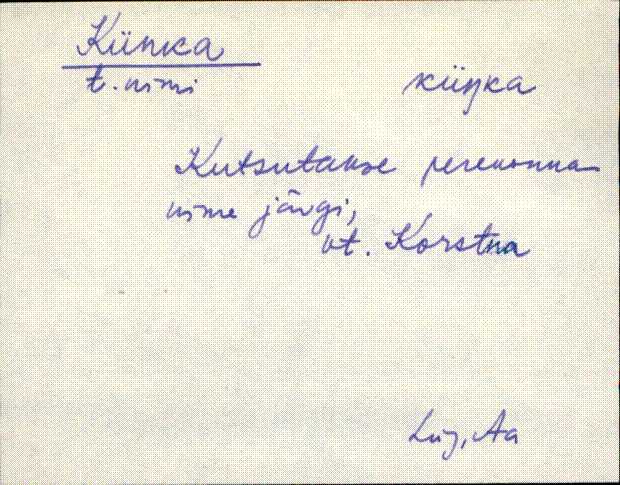 Kiinka
t. nimi kiiŋka
Kutsutakse perekonna-
nime järgi,
vt. Korstna
Lüg, Aa